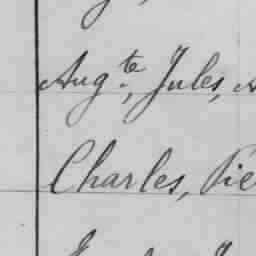 Aug.te, Jules,
Charles, Pie